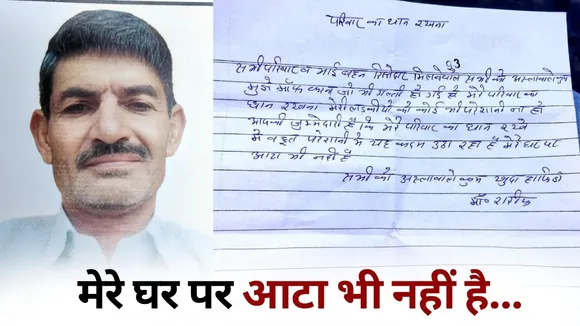 परिवार का ध्यान रखना
93
सभी परिवार व भाई बहन रिश्तेदार मिलने वाले सभी को अस्सलावालेकुम
मुझे माफ करना जो भी गलती हो गई है मेरे परिवार का
ध्यान रखना मेरी लडकीयों को कोई भी परेशानी ना हो
आपकी जुम्मेदारी है कि मेरे परिवार का ध्यान रखे
मै बहुत परेशानी मे यह कदम उठा रहा हूं मेरे घर पर
आटा भी नही है
सभी को अस्सलावालेकुम खुदा हाफिज
डॉ०
मेरे घर पर आटा भी नहीं है...